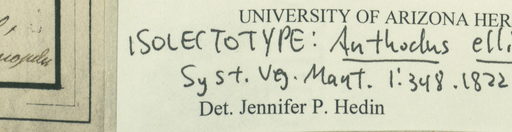 UNIVERSITY OF ARIZONA HER
ISOLECTOTYPE: Anthodus elli
Syst. Veg. Mant. 1:348.1822
Det. Jennifer P. Hedin